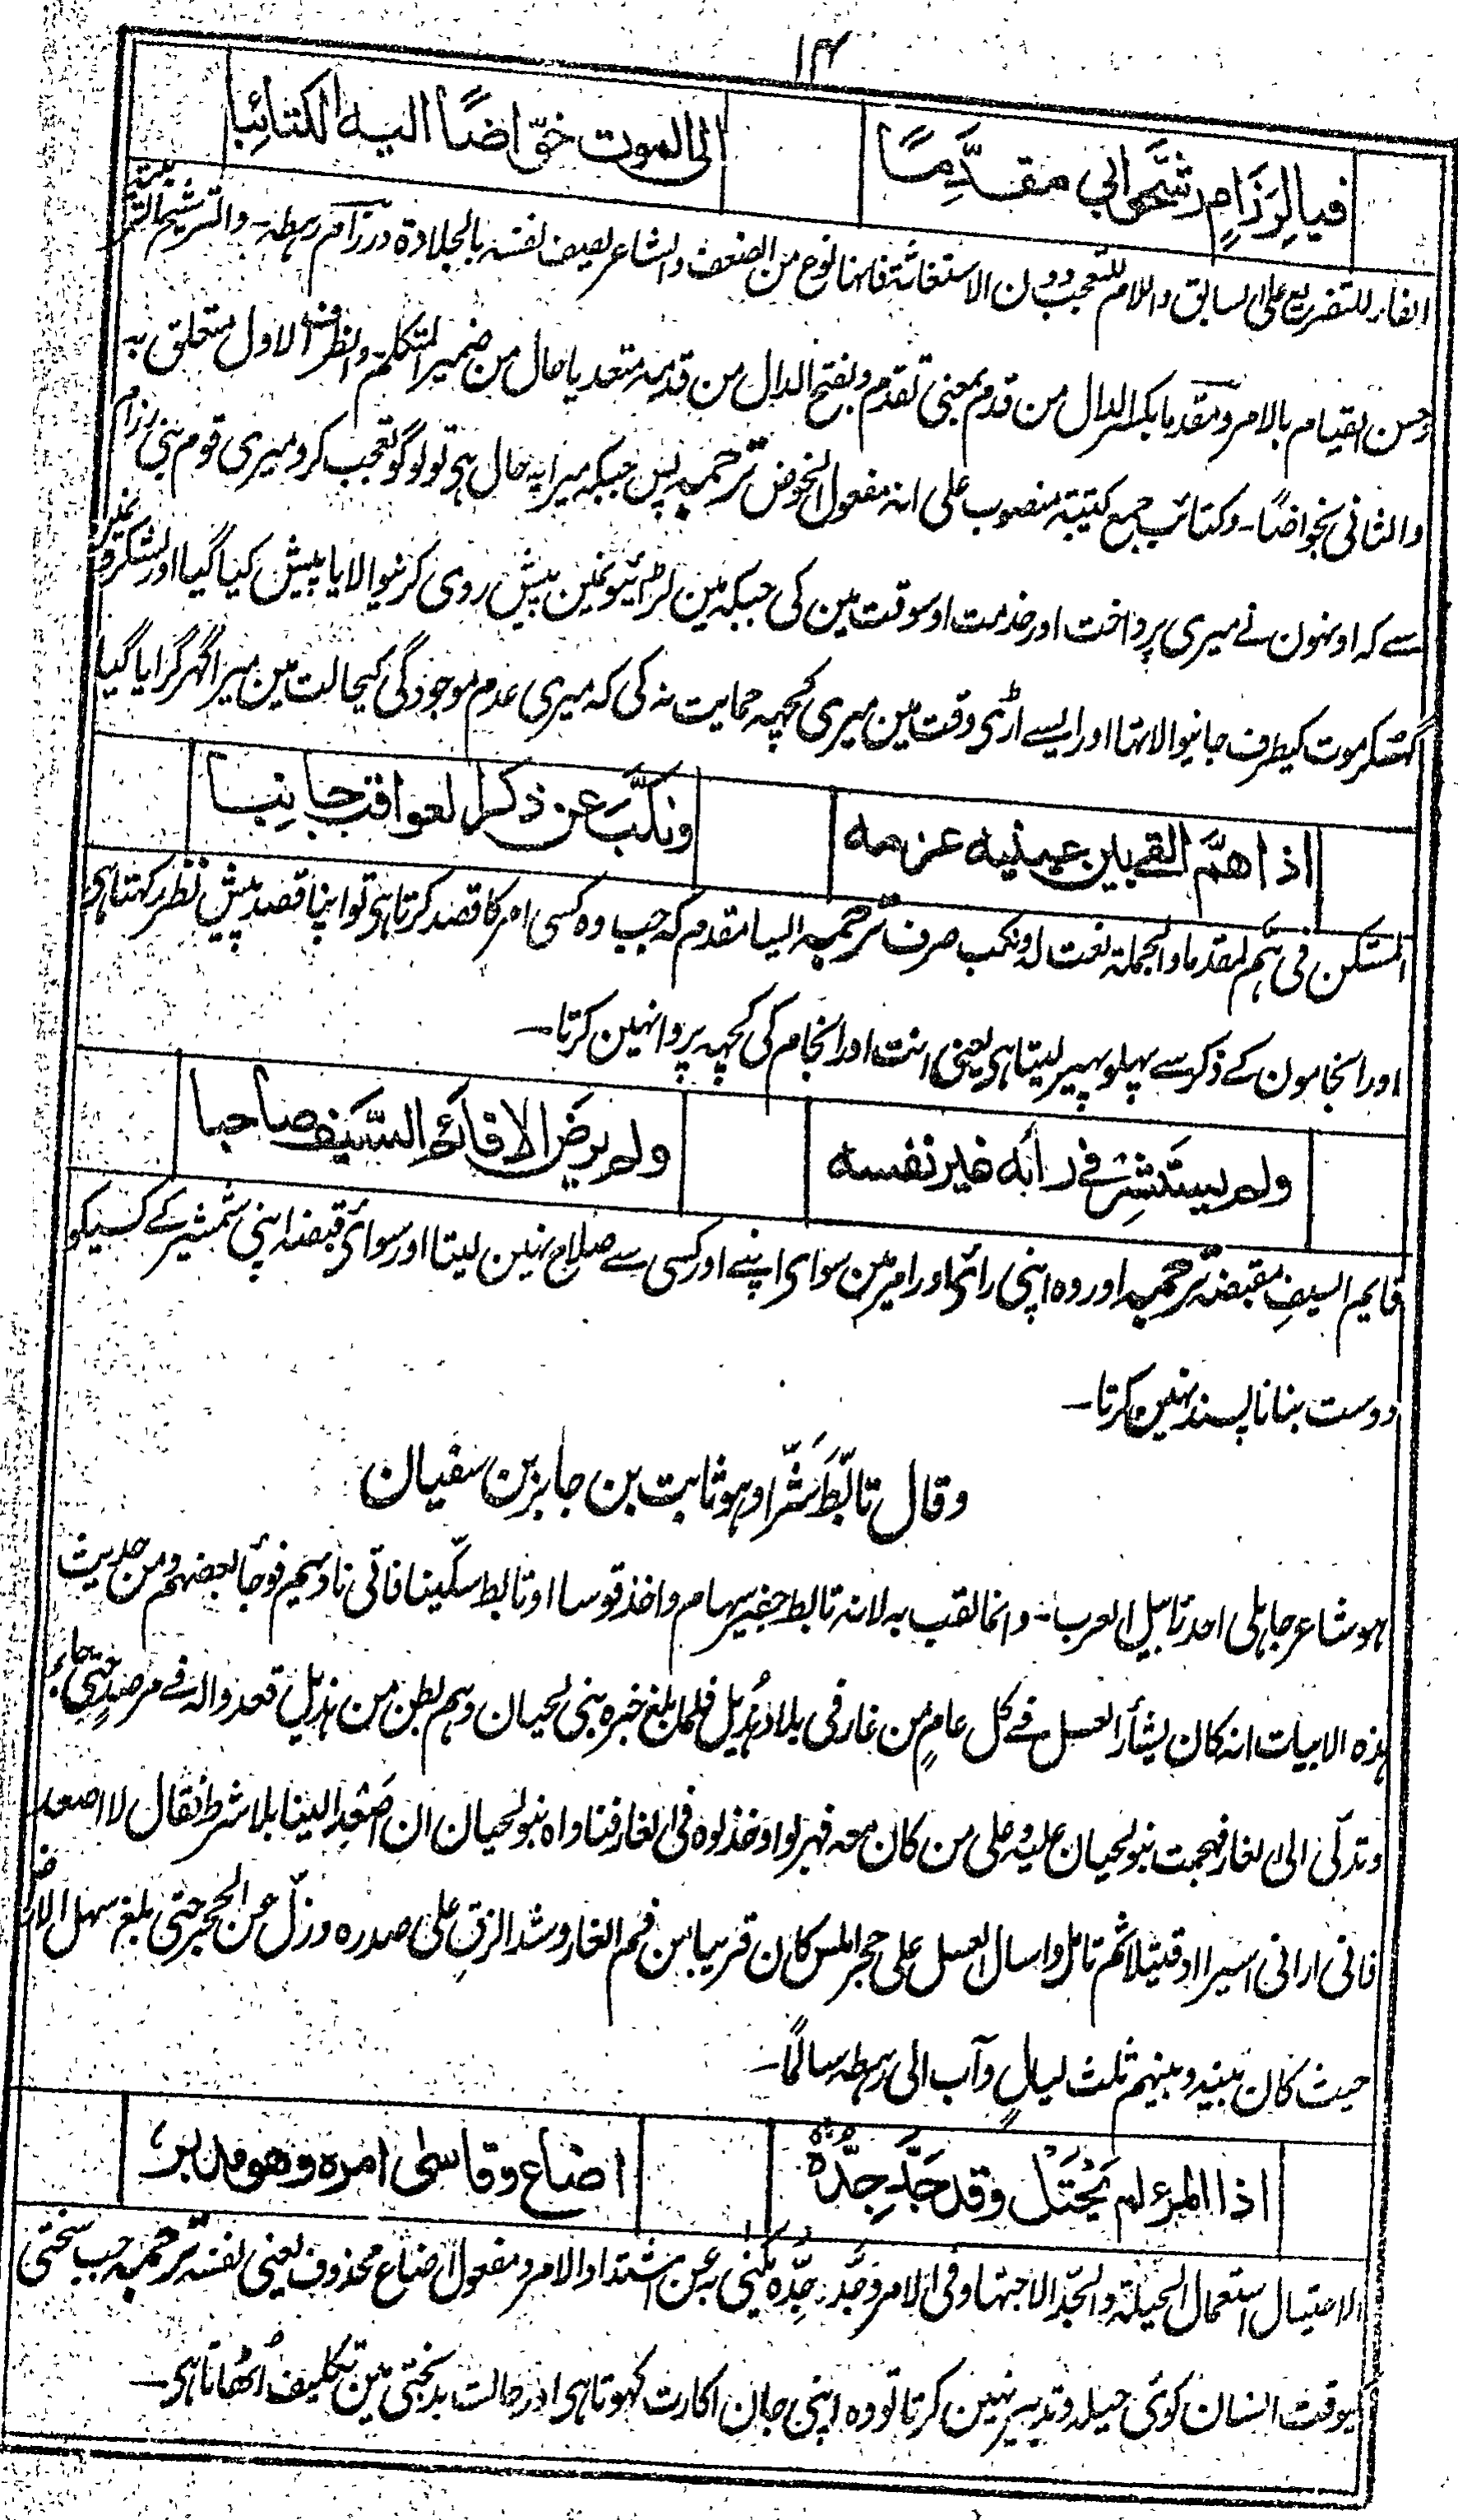 ۱۴
فيا لِرَزَامٍ رشّحوا بي مقدَّمًا الى الموت خوّاضًا اليه الكتائِبا
الفاء للتفریع علی السابق واللام للتعجب دون الاستغاثة فانها نوع من الضعف والشاعر یصف نفسه بالجلادة ورزام رهطه۔ والترشیح التربیته
وحسن القیام بالامر ومقدما بکسر الدال من قدم بمعنی تقدم وبفتح الدال من قدمه متعدیا حال من ضمیر المتکلم۔ والظرف الاول متعلق به
والثانی بخواضًا۔ وکتائب جمع کتیبته منصوب علی انه مفعول الخوض ترجمہ پس جبکہ میرا یہ حال ہی تو لوگو تعجب کرو میری قوم بنی رزام
سے کہ اونہون نے میری پرداخت اور خدمت اوسوقت مین کی جبکہ مین لڑائیونمین پیش روی کرنیوالا یا پیش کیا گیا اور لشکرو نمین
گھسکر موت کیطرف جانیوالا تہا اور ایسے اڑی وقت مین میری کچہہ حمایت نہ کی کہ میری عدم موجودگی کیحالت مین میرا گہر گرایا گیا
اذا همَّ القى بين عينيه عزمه ونكَّبَ عن ذكر العواقب جانِبا
المستکن فی ہم لمقدما والجملة نعت له ونکب صرف ترجمہ ایسا مقدم کہ جب وہ کسی امر کا قصد کرتا ہی تو اپنا قصد پیش نظر رکہتا ہی
اور انجامون کے ذکر سے پہلو پہیر لیتا ہی یعنی انت اور انجام کی کچہہ پروا نہین کرتا۔
ولم يستشِر في رأيه غير نفسه ولم يرضَ الا قائم السَّيف صاحبا
قایم السیفِ مقبضه ترجمہ اور وہ اپنی رائی اور امر مین سوای اپنے اور کسی سے صلاح نہین لیتا اور سوائ قبضہ اپنی شمشیر کے کسیکو
دوست بنانا پسند نہین کرتا۔
وقال تأبّطَ شَرًّا وہو ثابت بن جابر بن سفیان
ہو شاعر جاہلی احد تٱبیل العرب۔ وانما لقب به لانه تابط جفیر سہام واخذ قوسا او تابط سکّینا فاتی نادیہم فوجأ بعضهم ومن حدیث
ہذہ الابیات انه کان یشتأر العسل فے کل عامٍ من غار فی بلاد ہُذیل فلما بلغ خبرہ بنی لحیان وہم بطن من ہذیل قعدوا له فے مرصدٍ حتی جاء
وتدلّی الی الغار فہجمت بنو لحیان علیه وعلی من کان معه فہربوا وخذلوہ فی الغار فناداہ بنو لحیان ان اصْعِد الینا بلا شرط فقال لا اصعد
فانی ارانی اسیرا او قتیلا ثم تامل واسال العسل علی حجر املس کان قریبا من فم الغار وشد الزق علی صدرہ وزلّ عن الحجر حتی بلغ سہل الارض
حیث کان بینه وبینہم ثلث لیالٍ وآب الی رہطه سالمًا۔
اذا المرء لم يَحْتَلْ وقد جَدَّ جِدُّهٗ اضاع وقاسى امره وهو مدبر
الاحتیال استعمال الحیلة والجد الاجتہاد فی الامر وجَدَّ جِدُّہ یکنی به عن اشتداد الامر ومفعول اضاع محذوف یعنی نفسه ترجمہ جب سختی
کیوقت انسان کوئی حیلہ وتدبیر نہین کرتا تو وہ اپنی جان اکارت کہوتا ہی اور حالت بدبختی مین تکلیف اُٹھاتا ہی۔